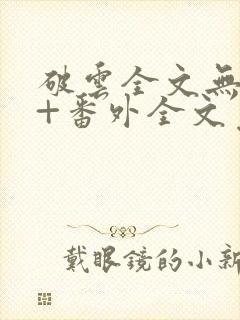 破雲全文無
+番外全文
戴眼鏡的小新